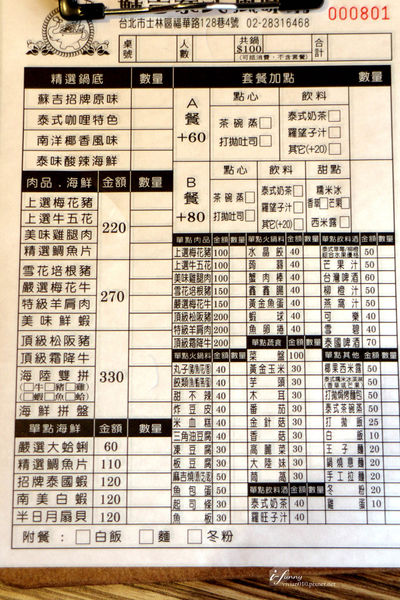 台北市士林區福華路128巷4號 02-28316468
000801
桌號 人數 共鍋$100 合計
(可抵消費，不含套餐)
精選鍋底 數量
蘇吉招牌原味
泰式咖哩特色
南洋椰香風味
泰味酸辣海鮮
肉品．海鮮 金額 數量
上選梅花豬
上選牛五花
美味雞腿肉
精選鯛魚片
220
雪花培根豬
嚴選梅花牛
特級羊肩肉
美味鮮蝦
270
頂級松阪豬
頂級霜降牛
海陸雙拼
(□牛□豬□雞)
(□蝦□魚□蛤)
海鮮拼盤
330
單點海鮮 金額 數量
嚴選大蛤蜊 60
精選鯛魚片 110
招牌泰國蝦 120
南美白蝦 120
半日月扇貝 120
附餐： □白飯 □麵 □冬粉
套餐加點 數量
A餐+60
點心 飲料
茶碗蒸□
打拋吐司□
泰式奶茶□
羅望子汁□
其它(+20)□
B餐+80
點心 飲料 甜點
茶碗蒸□
打拋吐司□
泰式奶茶□
羅望子汁□
其它(+20)□
糯米冰
西米露□
單點肉品 金額 數量
上選梅花豬 100
上選牛五花 100
美味雞腿肉 100
雪花培根豬 150
嚴選梅花牛 150
特級羊肩肉 150
頂級松阪豬 200
特級羊肩肉 200
頂級霜降牛 200
單點火鍋料 金額 數量
甜不辣 40
炸豆皮 40
米血糕 30
三角油豆腐 40
凍豆腐 30
板豆腐 30
魚包蛋 50
起司條 50
魚板 30
單點火鍋料 金額 數量
水晶餃 40
蒟蒻 40
蟹肉棒 40
鑫鑫腸 40
黃金魚蛋 40
蝦球 40
魚卵捲 40
單點蔬食 金額 數量
菜盤 100
黃金玉米 30
芋頭 30
木耳 30
番茄 30
金針菇 30
香菇 30
高麗菜 30
大陸妹 30
茼蒿 30
單點飲料 金額 數量
泰式奶茶 40
羅旺子汁 40
單點飲料酒 金額 數量
芒果汁 50
台灣啤酒 60
柳橙汁 50
燕窩汁 50
可樂 40
雪碧 40
泰國啤酒 70
單點其他 金額 數量
椰果西米露 50
泰式茶碗蒸 50
打拋飯 25
白飯 10
王子麵 20
鍋燒意麵 20
手工拉麵 20
冬粉 20
雞蛋 10